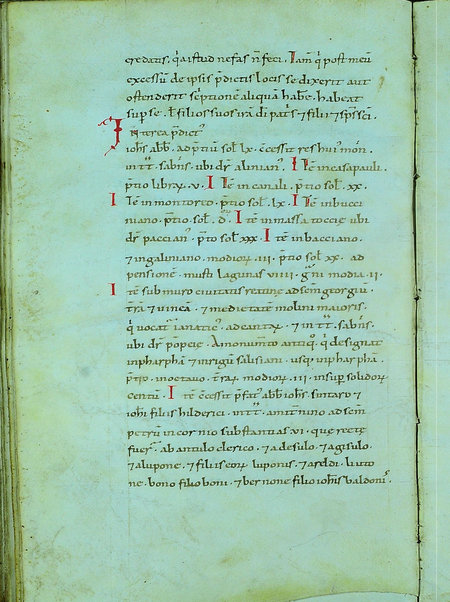 credatis. q̄a istud nefas n̄ feci. Iam q̇ post meū
excessū de ipsis p̄dictis locis se dixerit aut
ostenderit sc̄ptionē aliquā hab̄e. habeat
sup se. ł filios suos irā dī patˢ ⁊ filii ⁊ sp̄s sc̄i.
INterea p̄dict᾽
ioh̄s abb̄. ad p̄tiū sol̄ lx. c̄cessit res hui᾽ mon̄.
in tt̄. sabin̄s. ubi dr̄ alinian᾽. Itē in casa pauli.
p̄tio librar̄. v. Itē in canali. p̄tio sol̄. xx.
Itē in montoreo. p̄tio sol̄. lx. Itē in bucci
niano. p̄tio sol̄. d̄. Itē in massa toccię ubi
dr̄ paccian᾽. p̄tio sol̄ xxx. Itē in bacciano.
⁊ in galiniano. modior̄. iii. p̄tio sol̄ xx. ad
pensionē. musti lagunas viiii. gͣni modia. ii.
Itē sub muro civitatis reatinę ad scm̄ georgiū.
tr̄ā ⁊ vineā. ⁊ medietatē molini maioris.
q̇ vocat᾽ ianatici᾽. ⁊ in tt̄. sabin̄s.
ubi dr̄ pompeię. A monum̄to antiq°. q̇ designat᾽
in pharphā ⁊ in rigum salisiani. usq; in pharphā.
p̄tio. moetavo. tr̄ar̄. modior̄. iii. insup solidor̄
centū. Itē c̄cessit p̄fat᾽ abb̄ ioh̄s. sintaro ⁊
ioh̄i filiis hilderici. in tt̄. amit̄nino ad scm̄
petrū in cornio substantias. vi. quę rectę
fuer̄ ab antulo clerico. ⁊ adesulo. ⁊ agisulo.
⁊ alupone. ⁊ filiis eor̄ luponis. ⁊ areldi. liuto
ne. bono filio boni. ⁊ bernone filio ioh̄is baldoni᾽.